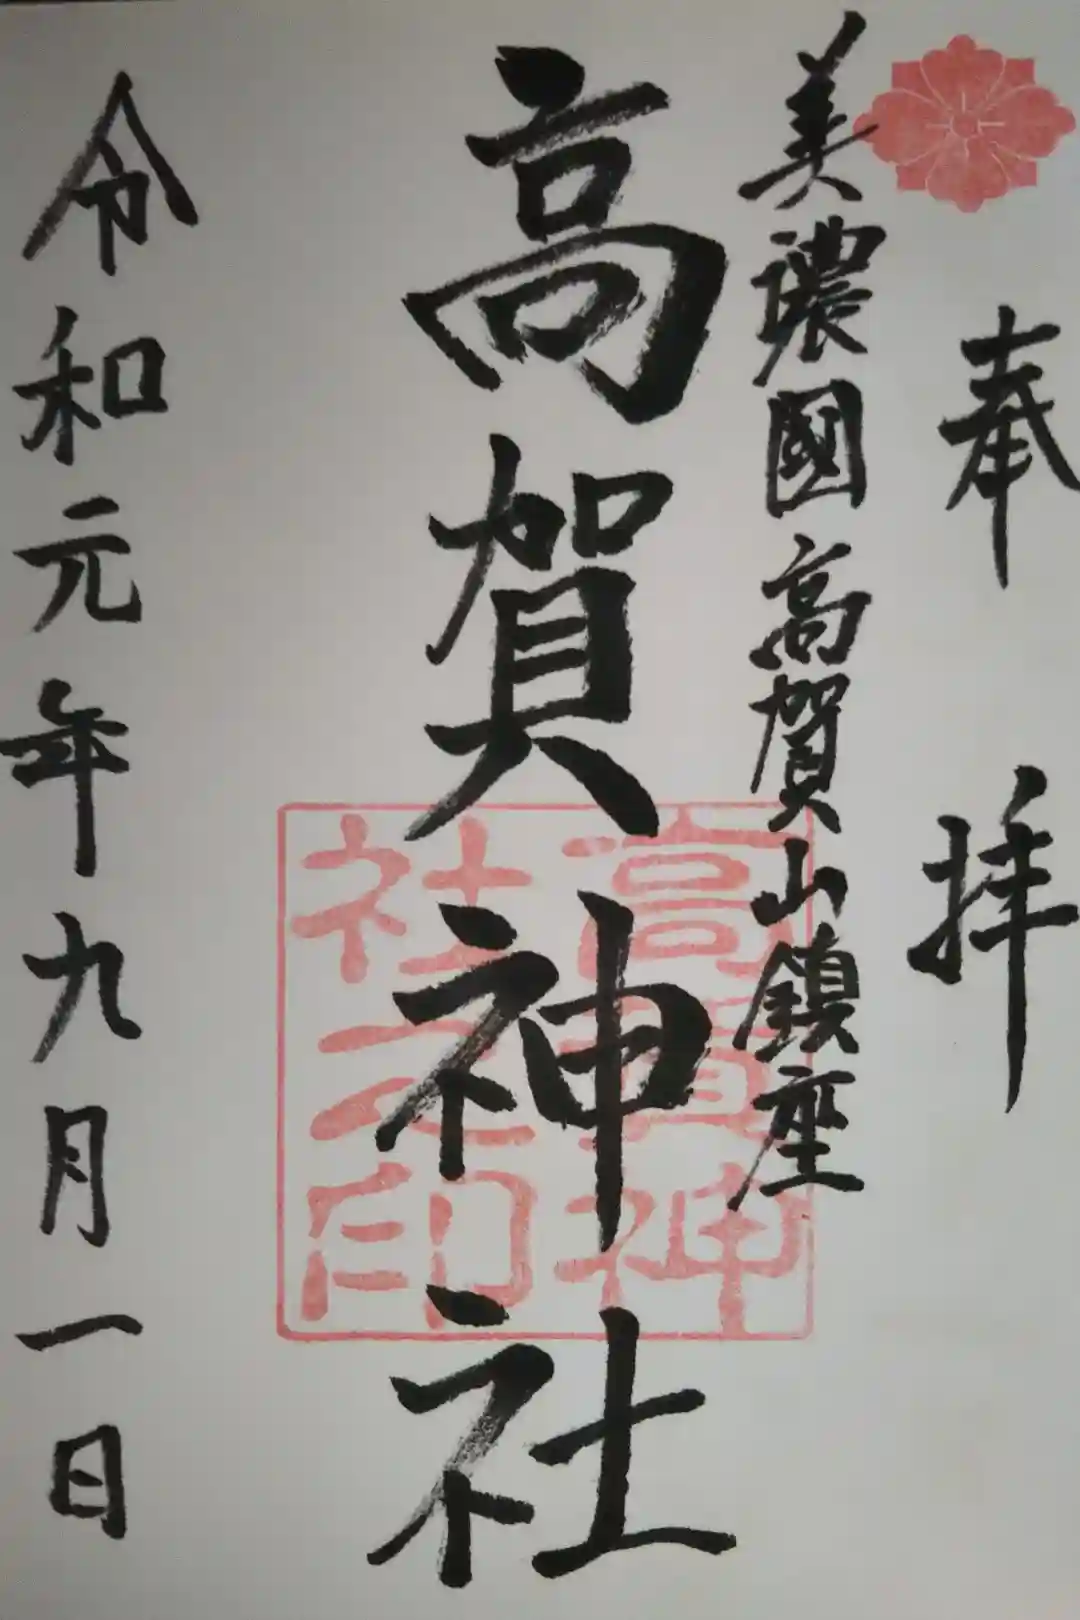 奉拝
美濃國高賀山鎮座
高賀神社
高賀神
社之印
令和元年九月一日